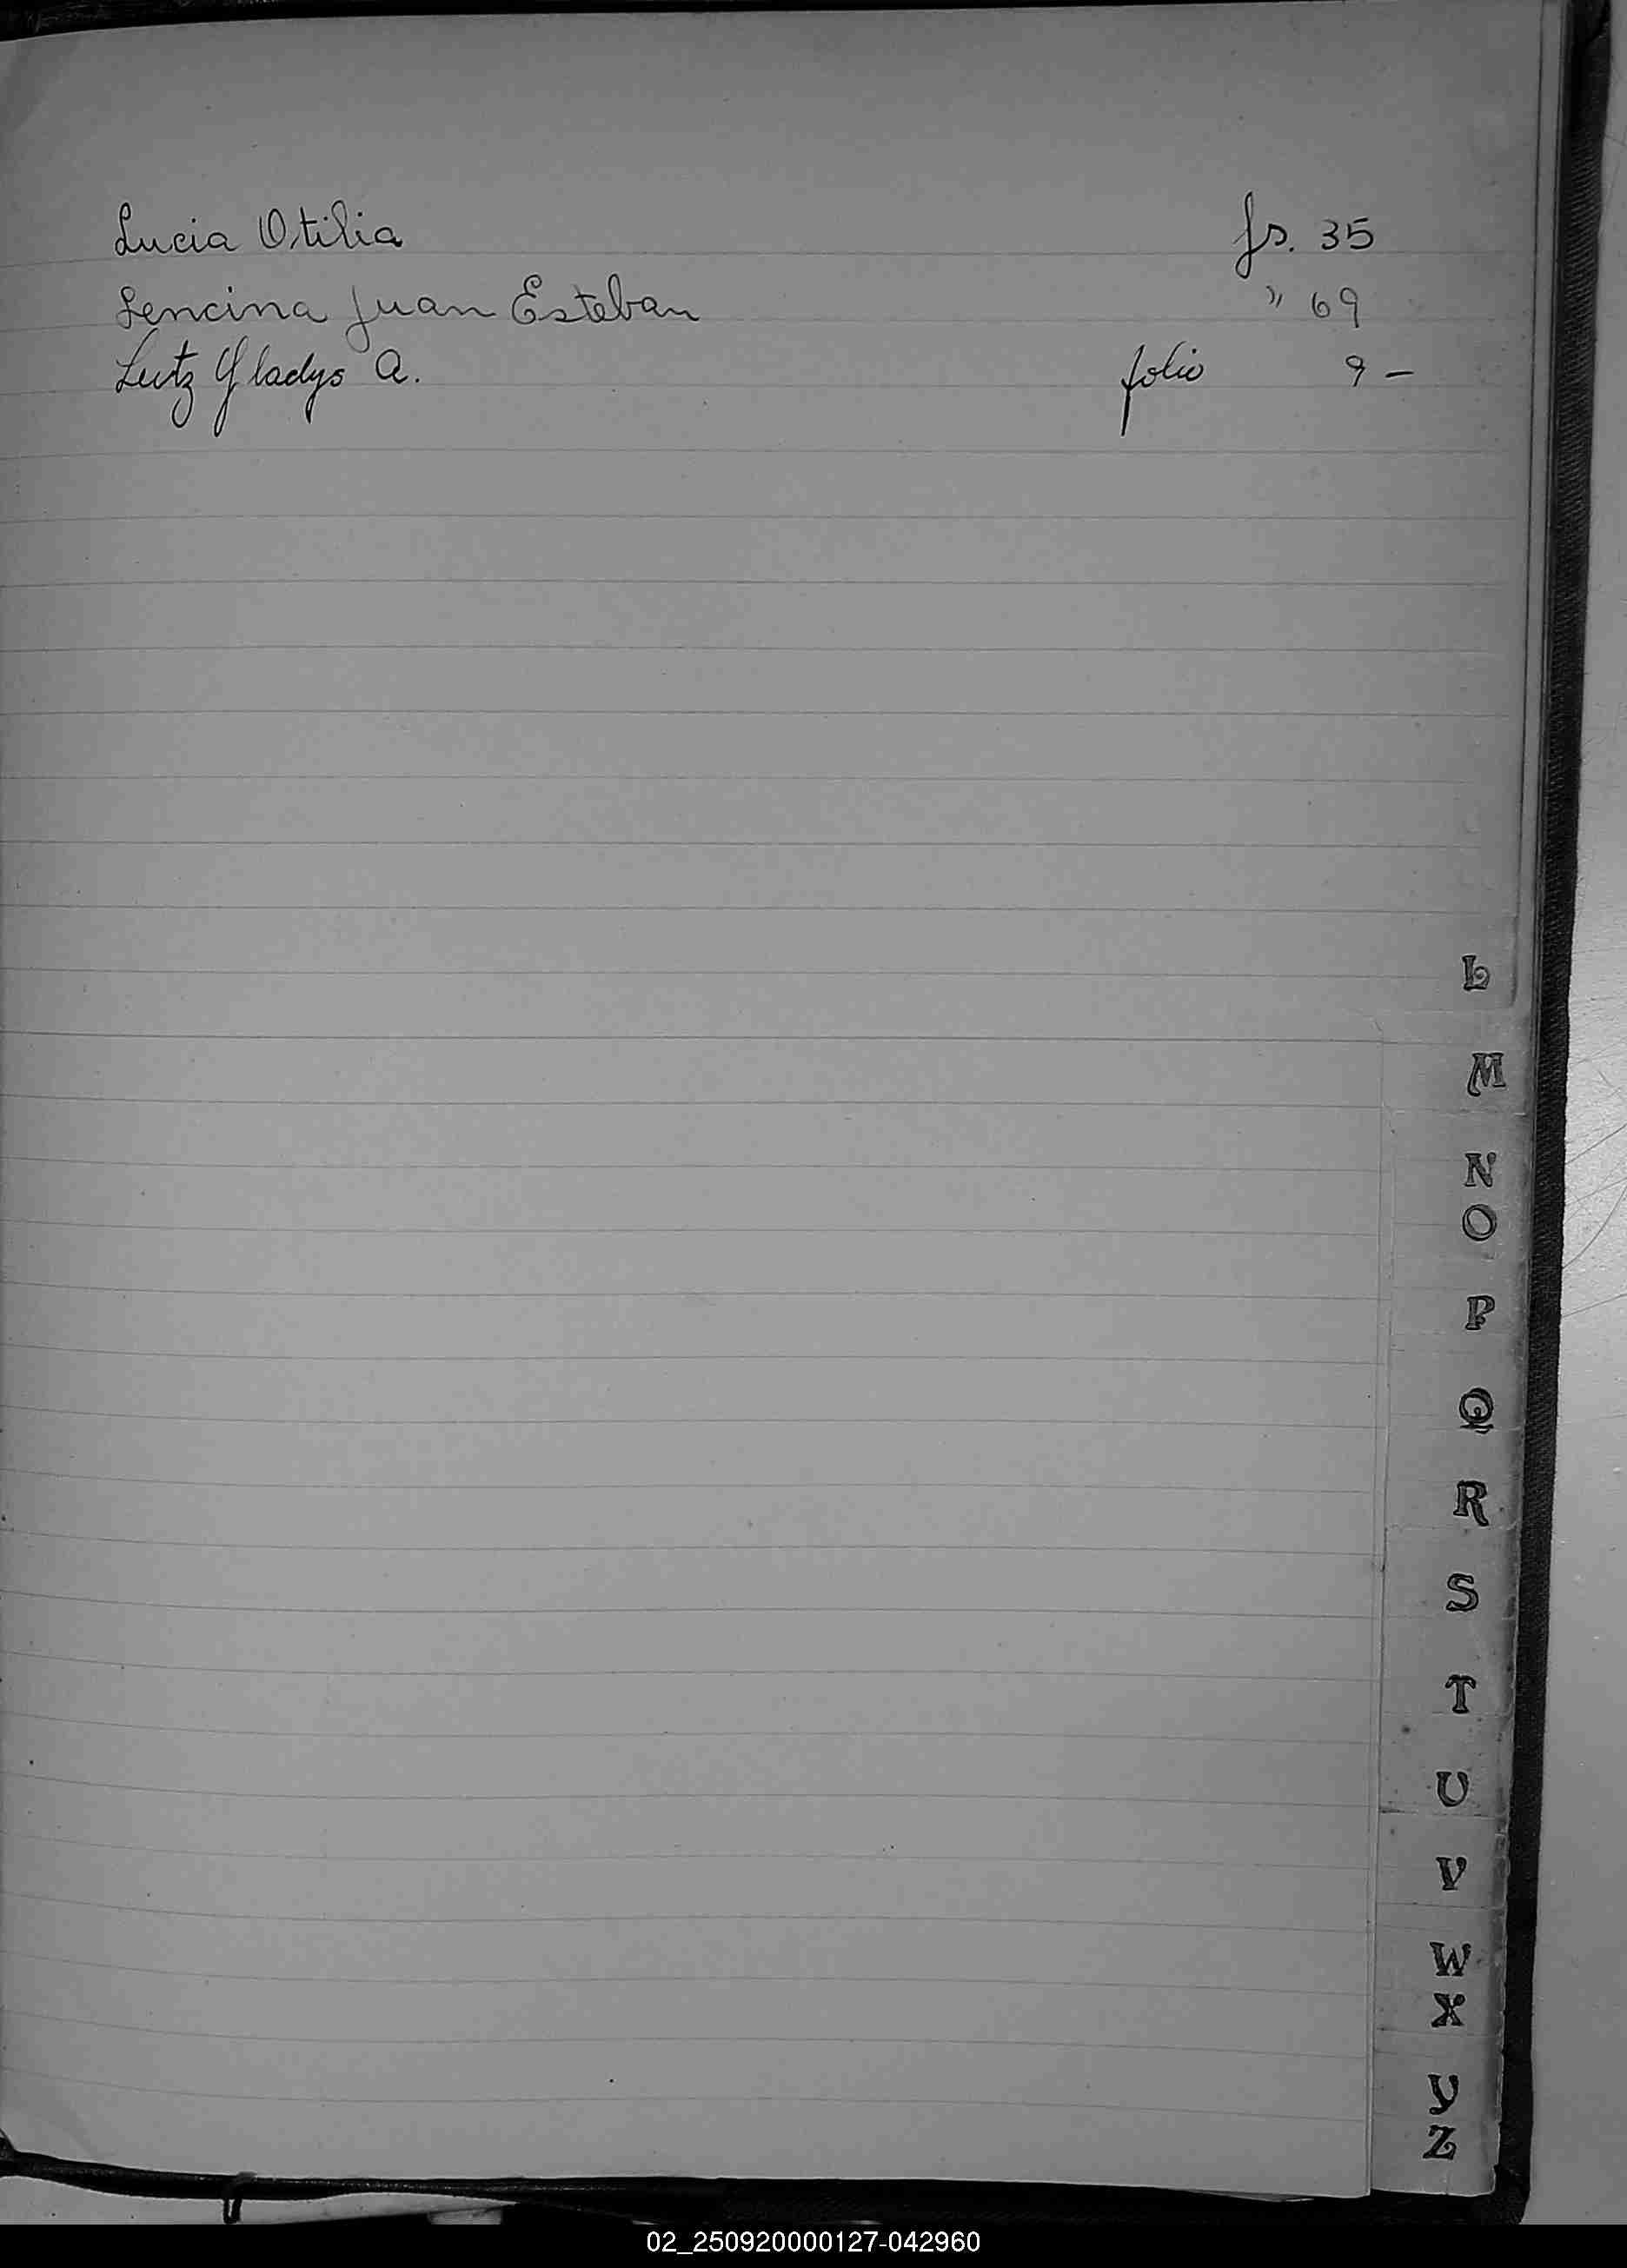 Lucia Otilia fs. 35
Lencina Juan Esteban " 69
Lutz Gladys A. folio 9 -
L
M
N
O
P
Q
R
S
T
U
V
W
X
Y
Z
02_250920000127-042960